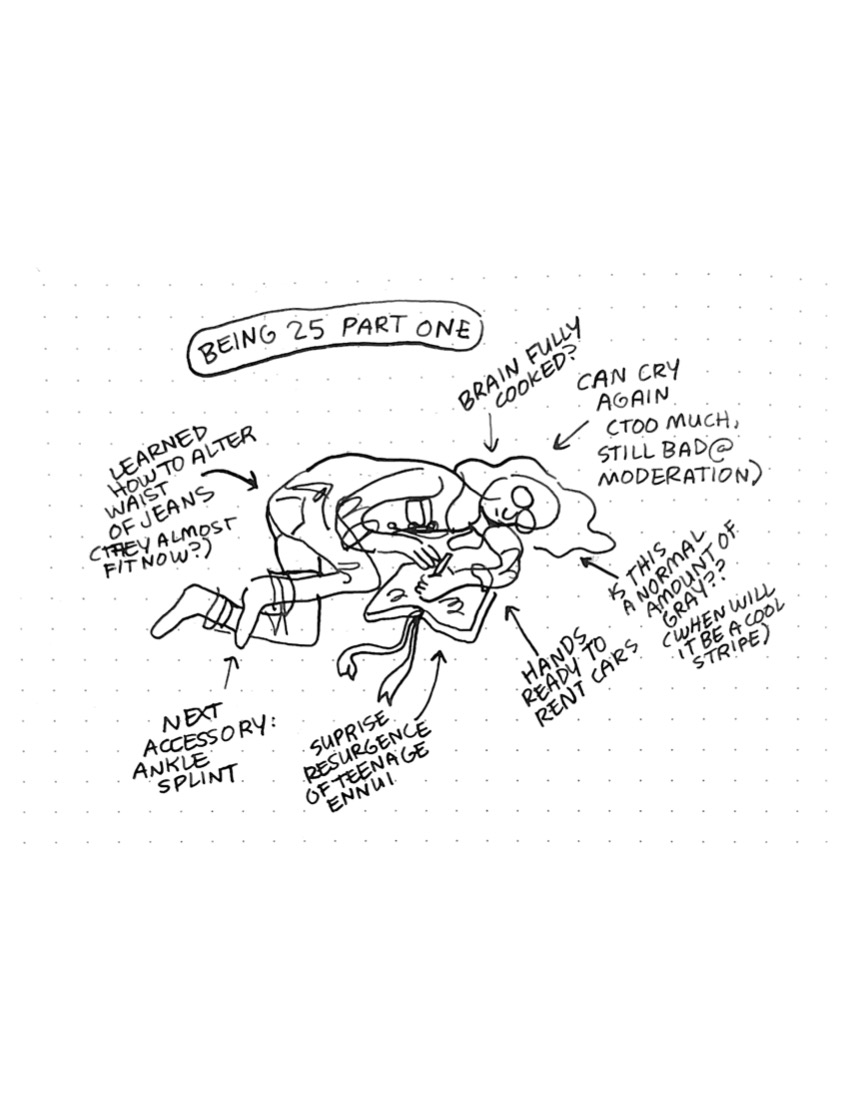 BEING 25 PART ONE
BRAIN FULLY
COOKED?
CAN CRY
AGAIN
(TOO MUCH,
STILL BAD@
MODERATION)
LEARNED
HOW TO ALTER
WAIST
OF JEANS
(THEY ALMOST
FIT NOW?)
IS THIS
A NORMAL
AMOUNT OF
GRAY??
(WHEN WILL
IT BE A COOL
STRIPE)
HANDS
READY TO
RENT CARS
SUPRISE
RESURGENCE
OF TEENAGE
ENNUI
NEXT
ACCESSORY:
ANKLE
SPLINT